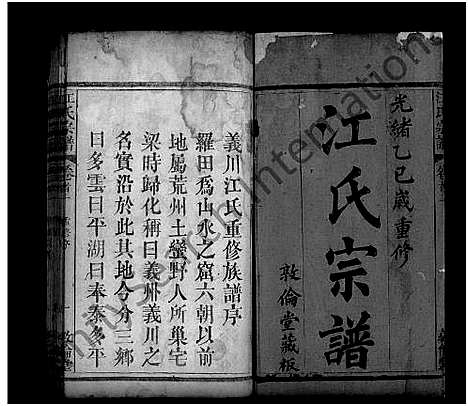 光緒乙巳歲重修
江氏宗譜
敦倫堂藏板
義川江氏重修族譜序
羅田爲山水之窟六朝以前
地屬荒州土蠻野人所巢宅
梁時歸化稱曰義州義川之
名實沿於此其地今分三鄉
曰多雲曰平湖曰奉泰多平
江氏宗譜
卷首